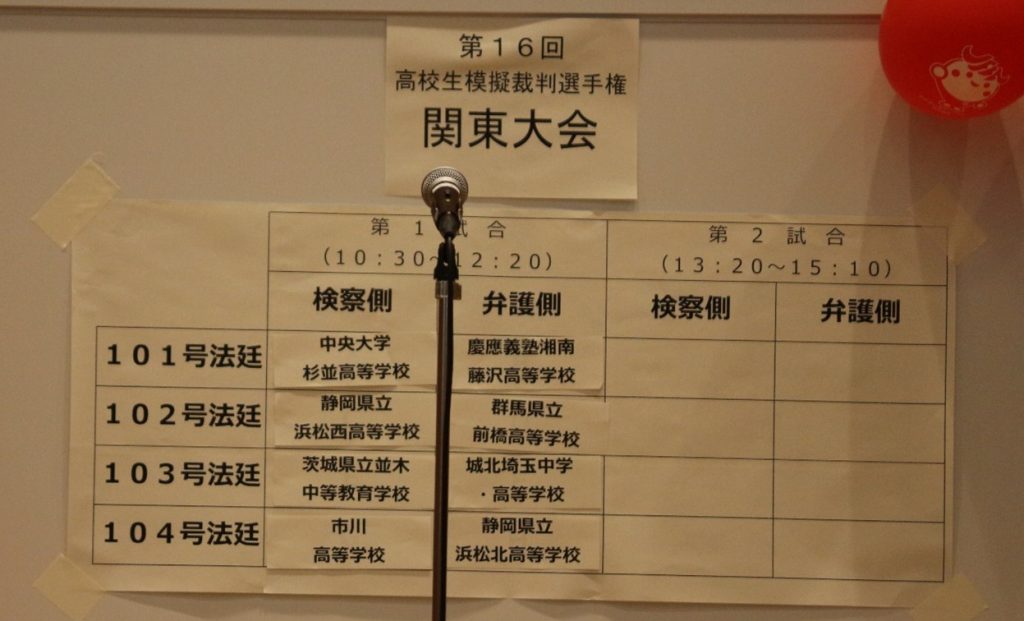 第１６回
高校生模擬裁判選手権
関東大会
第 １ 試 合
第 ２ 試 合
（１０：３０～１２：２０）
（１３：２０～１５：１０）
検察側
弁護側
検察側
弁護側
１０１号法廷
中央大学
杉並高等学校
慶應義塾湘南
藤沢高等学校
１０２号法廷
静岡県立
浜松西高等学校
群馬県立
前橋高等学校
１０３号法廷
茨城県立並木
中等教育学校
城北埼玉中学
・高等学校
１０４号法廷
市川
高等学校
静岡県立
浜松北高等学校